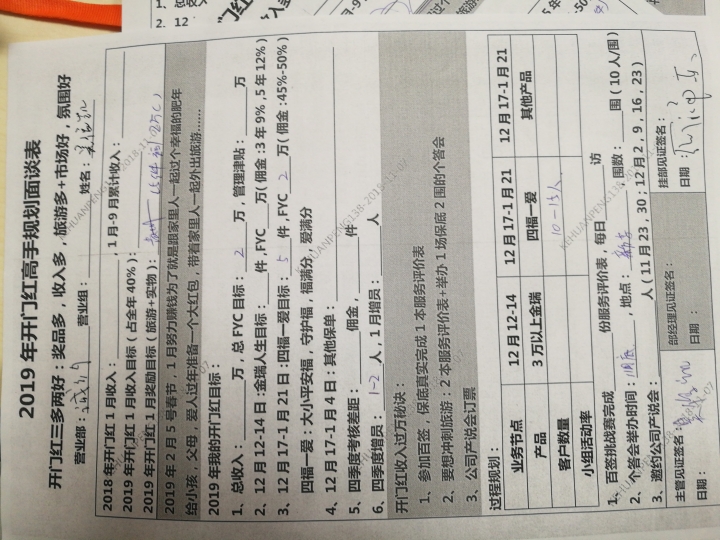 2019年开门红高手规划面谈表
开门红三多两好：奖品多，收入多，旅游多+市场好，氛围好
营业部： 营业组： 姓名：
2018年开门红1月收入： ，1月-9月累计收入：
2019年开门红1月收入目标（占全年40%）：
2019年开门红1月奖励目标（旅游+实物）：
2019年2月5号春节，1月努力赚钱为了就是跟家里人一起过个幸福的肥年
给小孩，父母，爱人过年准备一个大红包，带着家里人一起外出旅游……
2019年我的开门红目标：
1、总收入： 万，总FYC目标： 2 万，管理津贴： 万
2、12月12-14日:金瑞人生目标： 件,FYC 万(佣金:3年9%,5年12%)
3、12月17-1月21日:四福一爱目标： 5 件,FYC 2 万(佣金:45%-50%)
四福一爱：大小平安福，守护福，福满分，爱满分
4、12月17-1月4日：其他保单：
5、四季度考核差距： 佣金， 件
6、四季度增员： 1-2 人，1月增员： 人
开门红收入过万秘诀：
1、参加百签，保底真实完成1本服务评价表
2、要想冲刺旅游：2本服务评价表+举办1场保底2围的个答会
3、公司产说会订票
过程规划：
业务节点 12月12-14 12月17-1月21 12月17-1月21
产品 3万以上金瑞 四福一爱 其他产品
客户数量 10-15人
小组活动率
1、百签挑战赛完成 份服务评价表，每日 访
2、个答会举办时间： ，地点： 围数： 围（10人/围）
3、邀约公司产说会： 人（11月23，30；12月2，9，16，23）
主管见证签名： 部经理见证签名： 挂部见证签名：
日期： 日期： 日期：